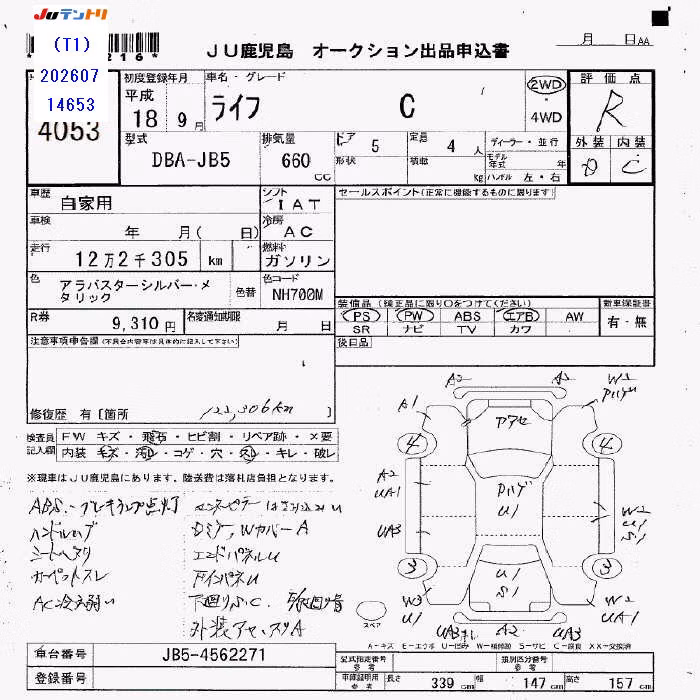 JUテントリ
(T1)
202607
14653
216*
JU鹿児島 オークション出品申込書
月 日AA
4053
初度登録年月
平成
18 9月
車名・グレード
ライフ C
2WD
4WD
評価点
R
外装 内装
D C
型式
DBA-JB5
排気量
660
CC
ドア 5
形状
定員 4 人
積載 kg
ディーラー・並行
モデル年式 年
ハンドル 左・右
車歴
自家用
シフト
IAT
セールスポイント(正常に機能するものに限ります)
車検
年 月( 日)
冷房
AC
走行
12万2千305 km
燃料
ガソリン
色
アラバスターシルバー・メ
タリック
色替
色コード
NH700M
装備品(純正品に限り○をつけてください)
PS PW ABS エアB AW
SR ナビ TV カワ
新車保証書
有・無
R券
9,310円
名変通知期限
月 日
後日品
注意事項申告欄(不具合内容等は具体的に記入して下さい)
修復歴 有[箇所 ]
122,306km
検査員
記入欄
FW キズ・飛石・ヒビ割・リペア跡・×要
内装 キズ・汚れ・コゲ・穴・スレ・キレ・破レ
※現車はJU鹿児島にあり、陸送費は落札店負担となります。
ABS、ブレーキランプ点灯
シートヘタリ
カーペットスレ
AC冷え弱い
エンドパネルU
下廻りS、C
外装アセ、スリA
A2 A1 W2
A1
アセ
4 4
A2
UA1
UA3
U1
W2
U1
S1
3 3
U1
S1
W3
U1
W2
UA1
UA3 A2 UA3
スペア
A-キズ E-エクボ U-凹み W-補修跡 S-サビ C-腐食 XX-交換済
車台番号 JB5-4562271
登録番号
型式指定番号
参考
類別区分番号
参考
車庫証明用
参考
長さ 339 cm 幅 147 cm 高さ 157 cm